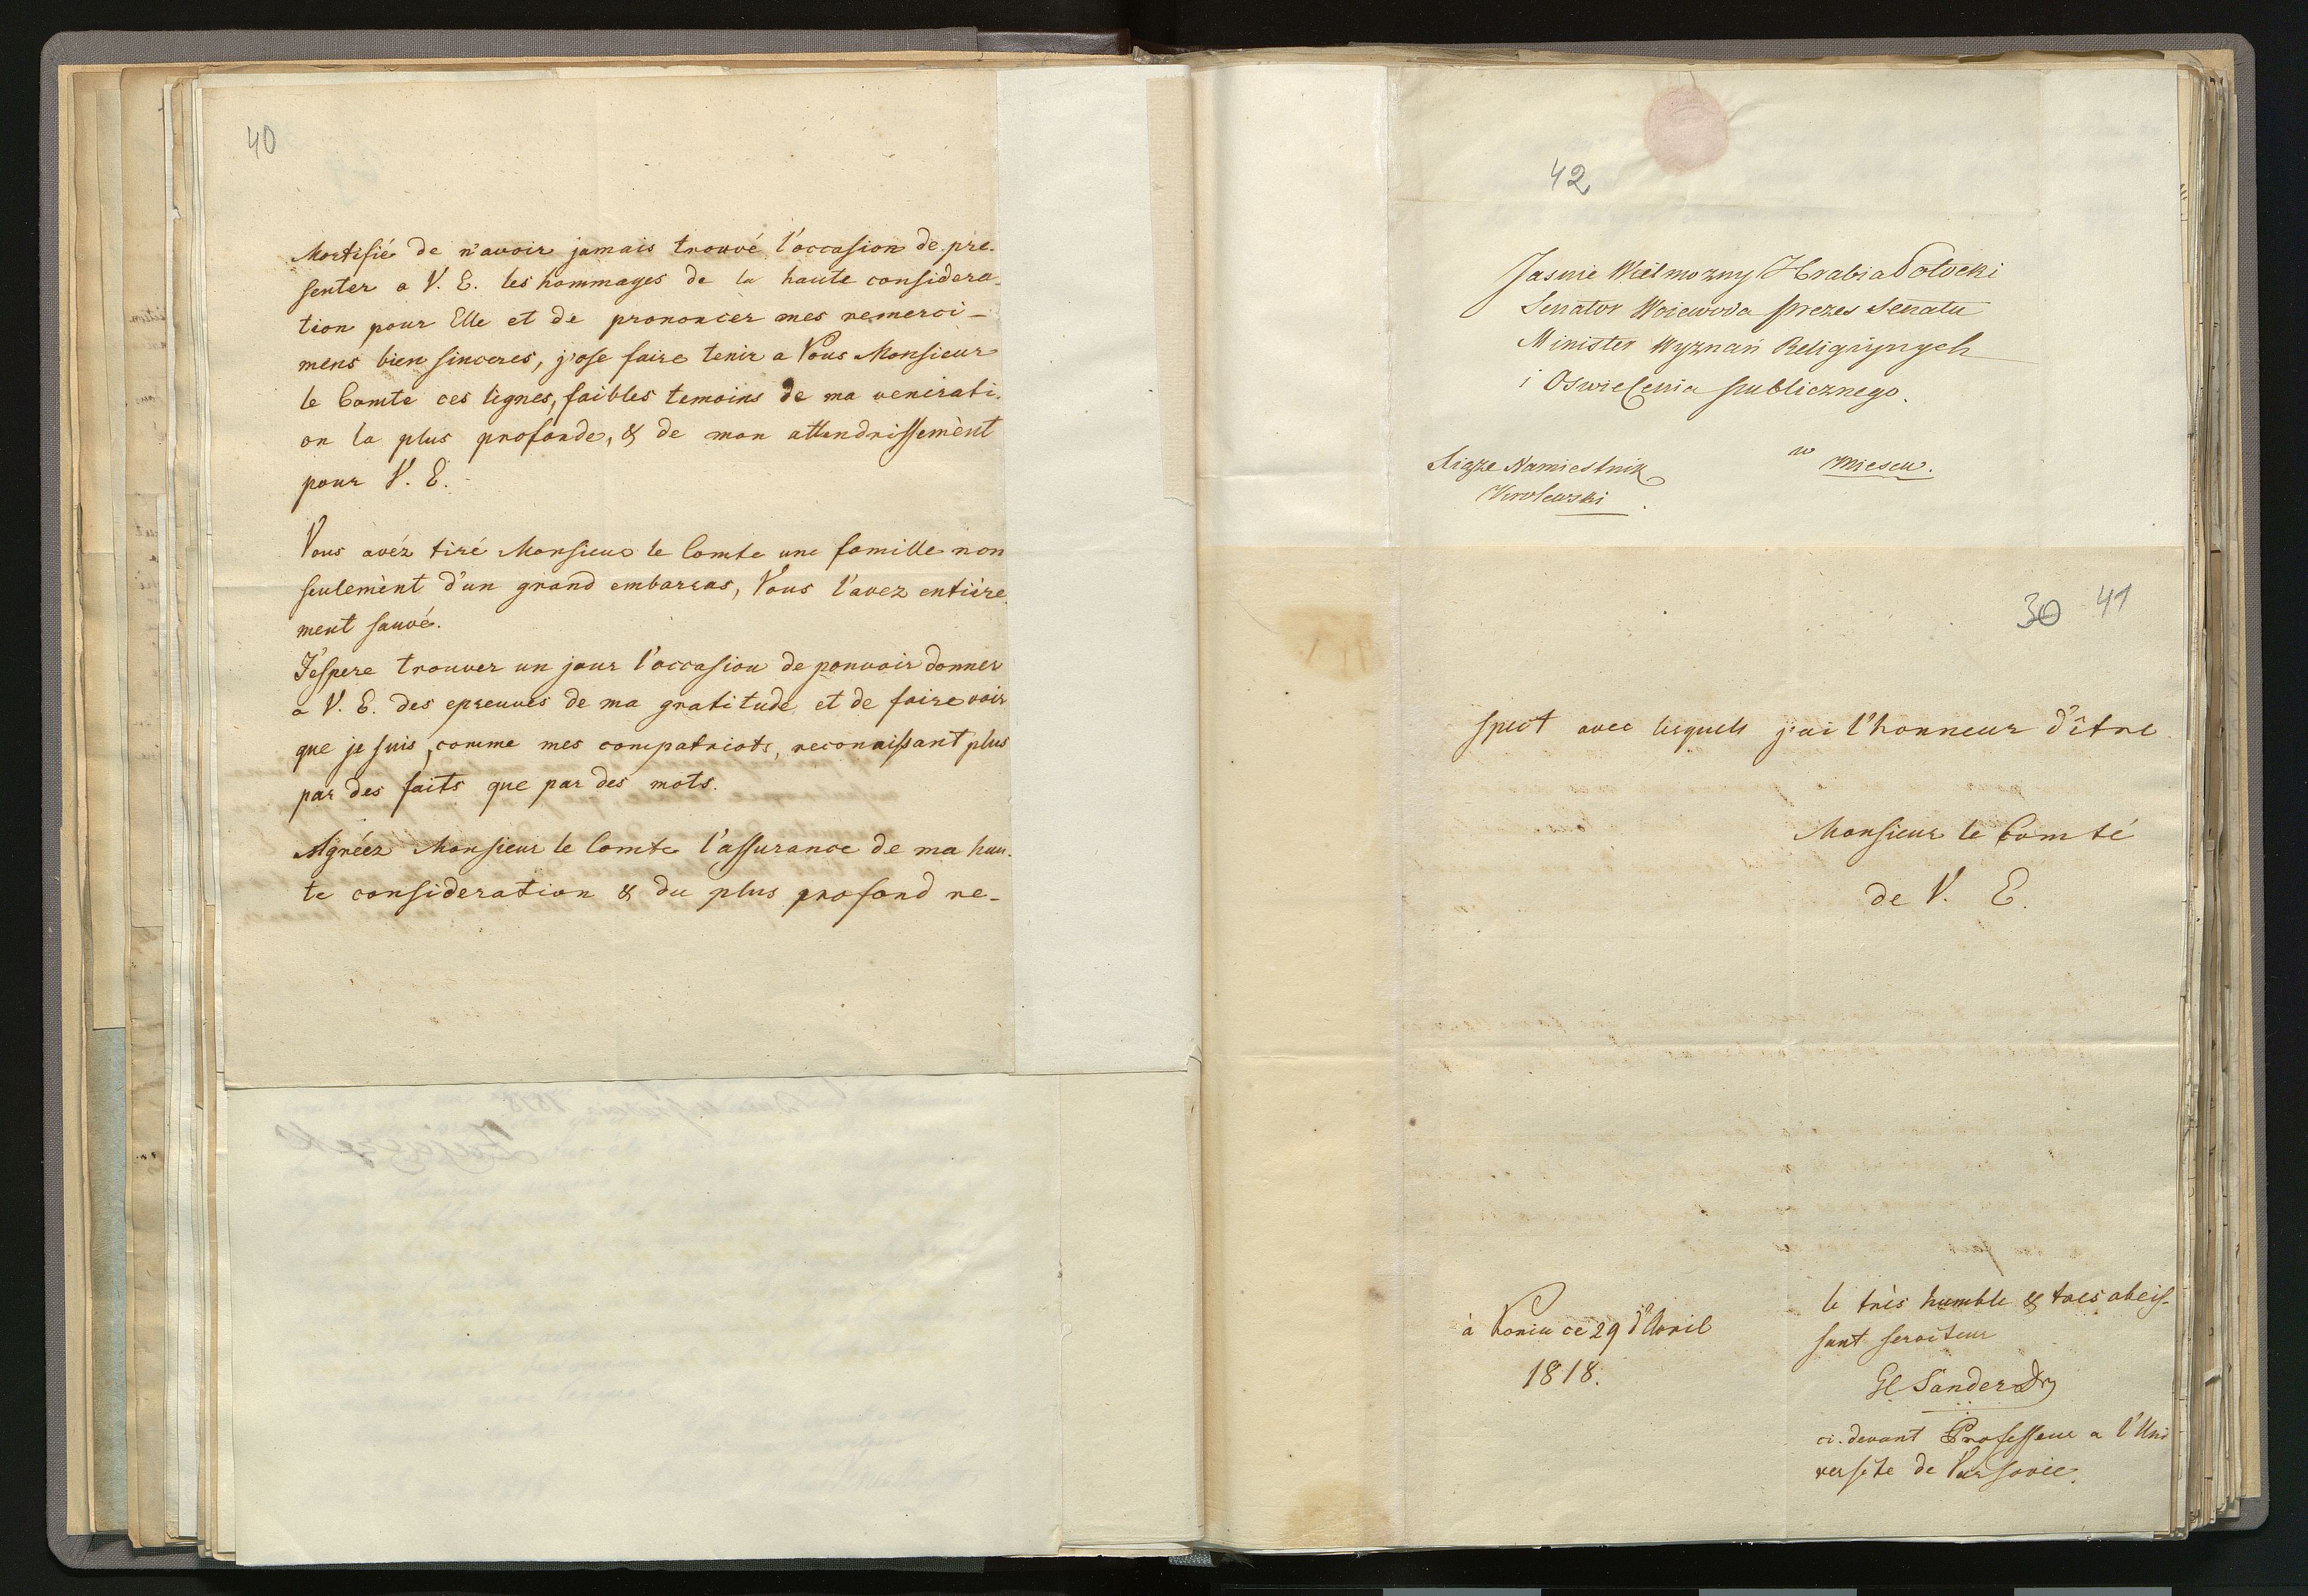 40
Mortifié de n'avoir jamais trouvé l'occasion de pre-
senter a V. E. les hommages de la haute considera-
tion pour Elle et de prononcer mes remerci-
mens bien sinceres, j'ose faire tenir a Vous Monsieur
le Comte ces lignes, faibles temoins de ma venerati-
on la plus profonde, & de mon attendrissemènt
pour V. E.
Vous avéz tiré Monsieur le Comte une famille non
seulemènt d'un grand embarras, Vous l'avez entière
ment sauvé.
J'espere trouver un jour l'occasion de pouvoir donner
a V. E. des epreuves de ma gratitude et de faire voir
que je suis, comme mes compatriots, reconnaissant plus
par des faits que par des mots.
Agréez Monsieur le Comte l'assurance de ma hau-
te consideration & du plus profond re-
42
Jasnie Wielmozny Hrabia Potocki
Senator Woiewoda prezes Senatu
Minister Wyznań Religiynych
i Oswiecenia publicznego.
w miescu.
Xiąże Namiestnik
Krolewski
30 41
spect avec lesquels j'ai l'honneur d'être
Monsieur le Comté
de V. E.
le très humble & tres obeis-
sant serviteur
à ce 29 d'Avril
1818.
Sander Dr
ci-devant Professeur a l'Uni
versite de Varsovie.